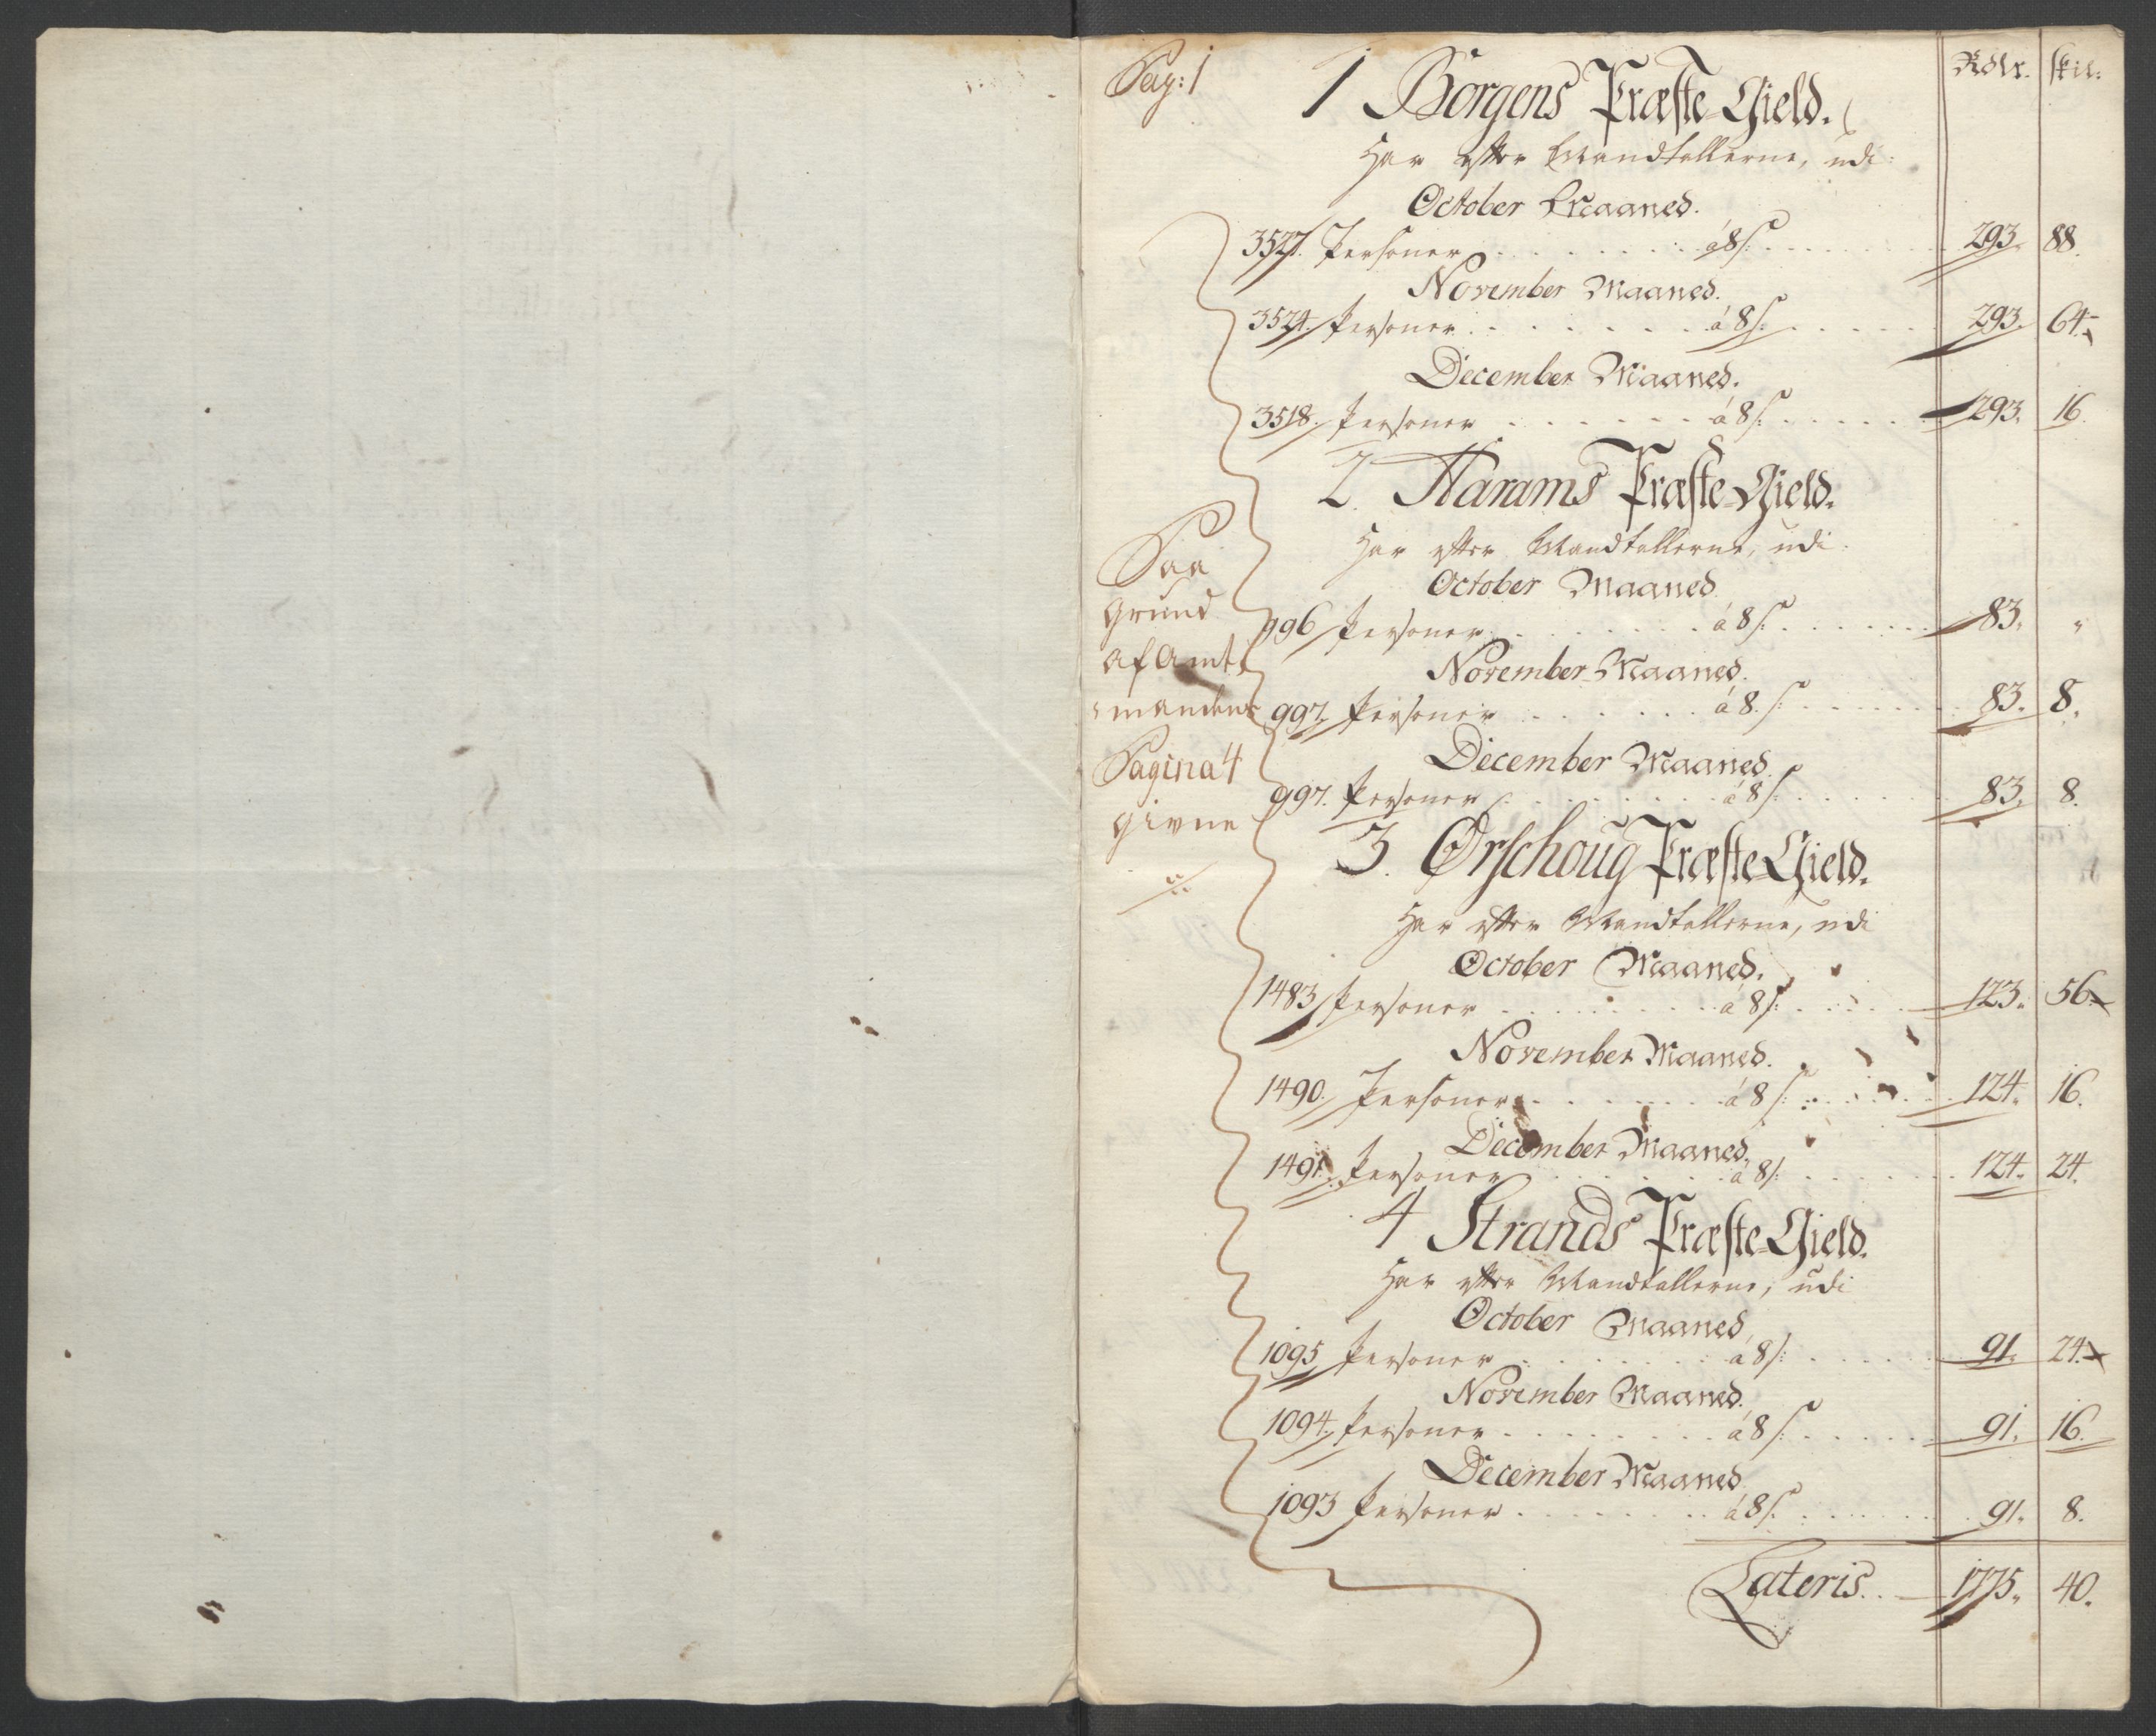 Pag: 1
Rdlr. skil:
1 Borgens Præste-Gield.
Har efter Mandtallerne, udi
October Maaned.
3527. Personer . . . . . . . á 8 s: . . . . . . 293. 88.
November Maaned.
3524. Personer . . . . . . . á 8 s: . . . . . . 293. 64.
December Maaned.
3518. Personer . . . . . . . á 8 s: . . . . . . 293. 16.
2. Harams Præste-Gield.
Har efter Mandtallerne, udi
October Maaned
996 Personer . . . . . . . á 8 s: . . . . . . 83. "
November Maaned.
997. Personer . . . . . . . á 8 s: . . . . . . 83. 8.
December Maaned.
997. Personer . . . . . . . á 8 s: . . . . . . 83. 8.
Paa
grund
af Amt-
mandens
Pagina 4
givne
3. Ørschoug Præste-Gield.
Har efter Mandtallerne, udi
October Maaned.
1483 Personer . . . . . . . á 8 s: . . . . . . 123. 56.
November Maaned.
1490. Personer . . . . . . . á 8 s: . . . . . . 124. 16.
December Maaned.
1491. Personer . . . . . . . á 8 s: . . . . . . 124. 24.
4 Strands Præste-Gield.
Har efter Mandtallerne, udi
October Maaned
1095 Personer . . . . . . . á 8 s: . . . . . . 91. 24.
November Maaned.
1094. Personer . . . . . . . á 8 s: . . . . . . 91. 16.
December Maaned
1093 Personer . . . . . . . á 8 s: . . . . . . 91. 8.
Lateris . . 1775. 40.